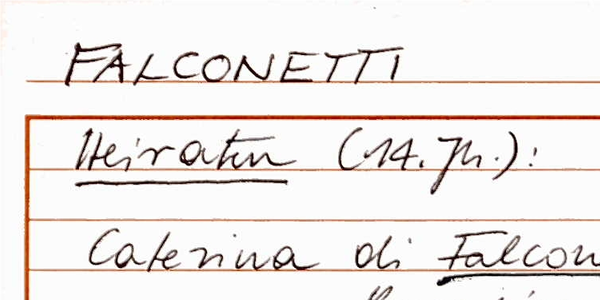 FALCONETTI
Heiraten (14. Jh.):
Caterina di Falcon